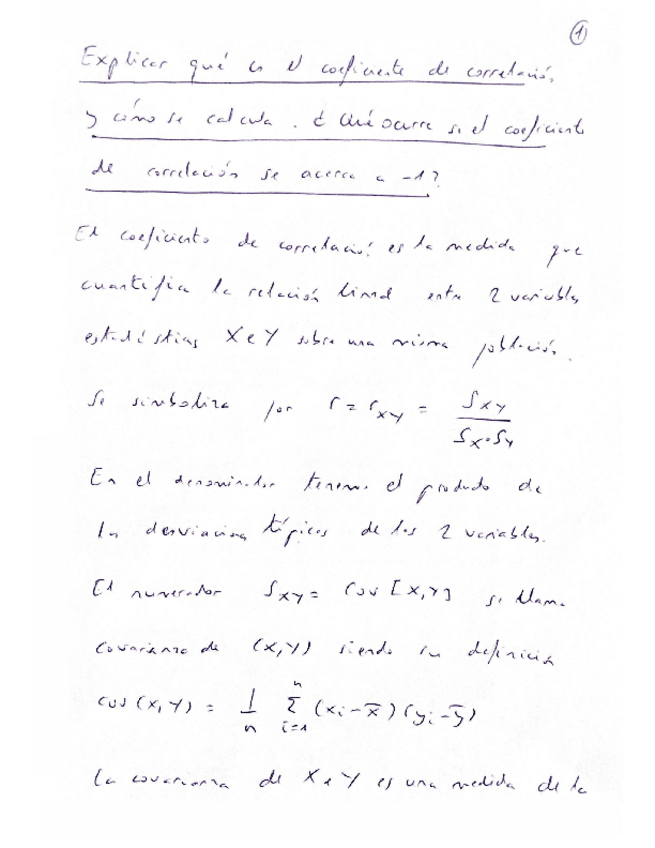 1
Explicar qué es el coeficiente de correlación,
y cómo se calcula. ¿Qué ocurre si el coeficiente
de correlación se acerca a -1?
El coeficiente de correlación es la medida que
cuantifica la relación lineal entre 2 variables
estadísticas X e Y sobre una misma población.
Se simboliza por r = r_XY = S_XY / (S_X · S_Y)
En el denominador tenemos el producto de
las desviaciones típicas de las 2 variables.
El numerador S_XY = Cov [X,Y] se llama
covarianza de (X,Y) siendo su definición
cov (X,Y) = 1/n Σ_{i=1}^{n} (xi - x̄)(yi - ȳ)
La covarianza de X e Y es una medida de la